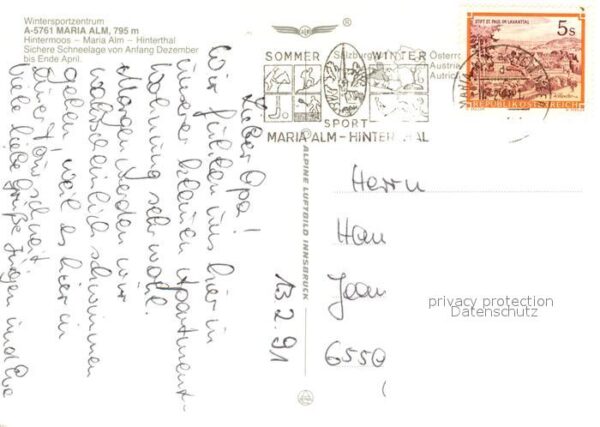 Wintersportzentrum
A-5761 MARIA ALM, 795 m
Hintermoos – Maria Alm – Hinterthal
Sichere Schneelage von Anfang Dezember
bis Ende April.
®
Salzburg
Österr
Austria
Autric
SOMMER WINTER
SPORT
MARIA ALM – HINTERTHAL
STIFT ST. PAUL IM LAVANTTAL
5 S
REPUBLIK ÖSTERREICH
ALPINE LUFTBILD INNSBRUCK
13.2.91
Lieber Opa!
Wir fühlen uns hier in
unserer kleinen Apartment-
wohnung sehr wohl.
Morgen werden wir
wahrscheinlich schwimmen
gehen, weil es hier in
schneit.
Viele liebe Grüße Jürgen und Eva
Herrn
Han
Jean
6550
privacy protection
Datenschutz